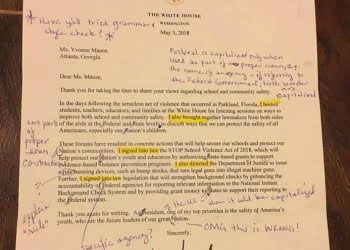 * Have y'all tried grammar &
style check? *
THE WHITE HOUSE
WASHINGTON
May 3, 2018
Federal is capitalized only when
used as part of a proper noun, e.g.
the name of agency - if referring to
the Federal Government, both words
are capitalized
Ms. Yvonne Mason
Atlanta, Georgia
Dear Ms. Mason,
Thank you for taking the time to share your views regarding school and community safety.
In the days following the senseless act of violence that occurred in Parkland, Florida, I hosted
students, teachers, educators, and families at the White House for listening sessions on ways to
improve both school and community safety. I also brought together lawmakers from both sides
of the aisle at the Federal and State levels to discuss ways that we can protect the safety of all
Americans, especially our Nation's children.
Not part
of
proper
noun
construction
These forums have resulted in concrete actions that will help secure our schools and protect our
Nation's communities. I signed into law the STOP School Violence Act of 2018, which will
help protect our Nation's youth and educators by authorizing State-based grants to support
evidence-based violence prevention programs. I also directed the Department of Justice to issue
a rule banning devices, such as bump stocks, that turn legal guns into illegal machine guns.
Further, I signed into law legislation that will strengthen background checks by enhancing the
accountability of Federal agencies for reporting relevant information to the National Instant
Background Check System and by providing grant money to States to support their reporting to
the Federal system.
?
explain
"rule"
Thank you again for writing. As President, one of my top priorities is the safety of America's
youth, who are the future leaders of our great Nation.
OMG this is WRONG!
specific agency?